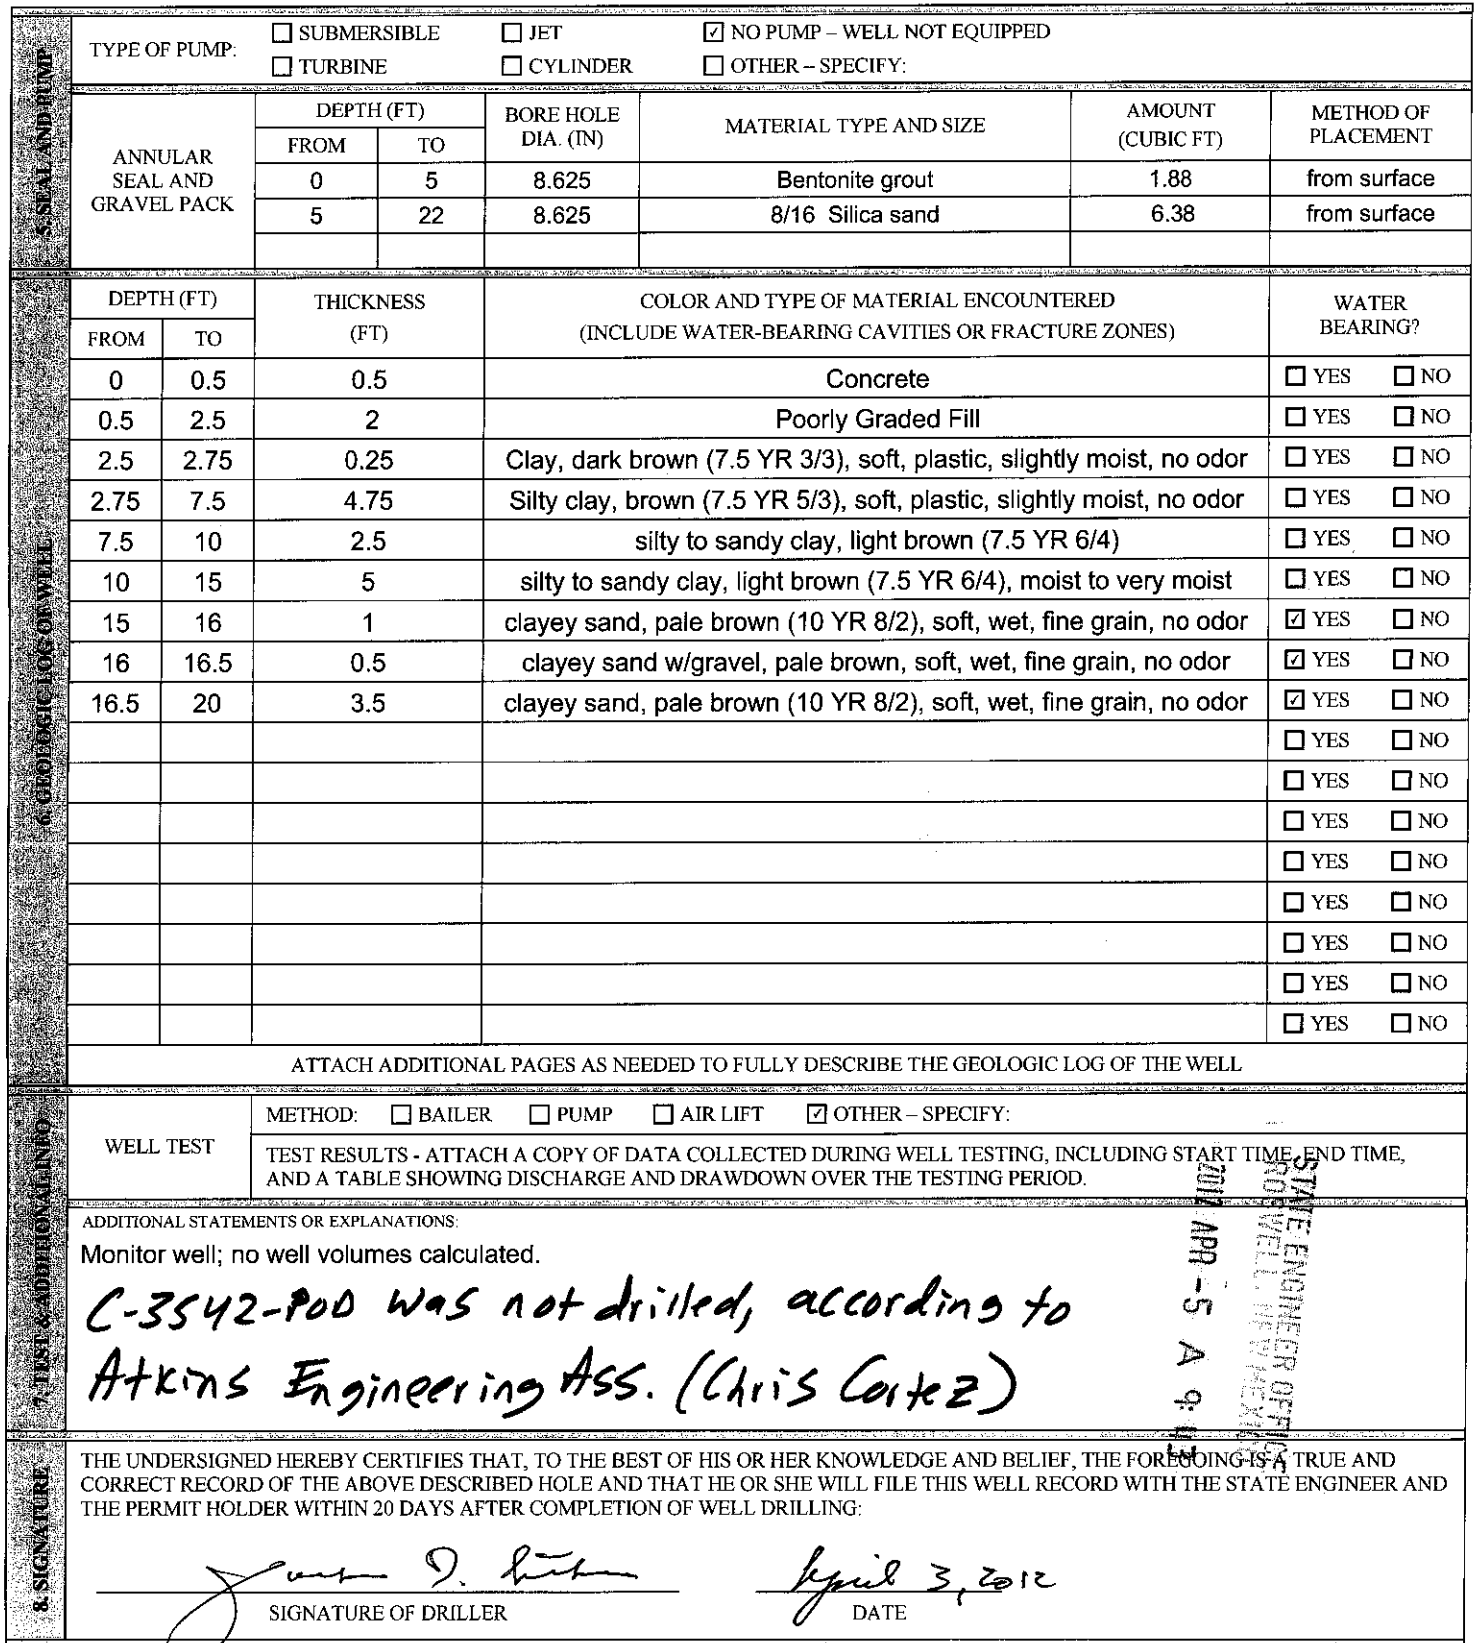 5. SEAL AND PUMP
TYPE OF PUMP: ☐ SUBMERSIBLE ☐ JET ☑ NO PUMP – WELL NOT EQUIPPED
☐ TURBINE ☐ CYLINDER ☐ OTHER – SPECIFY:
ANNULAR SEAL AND GRAVEL PACK
DEPTH (FT) BORE HOLE DIA. (IN) MATERIAL TYPE AND SIZE AMOUNT (CUBIC FT) METHOD OF PLACEMENT
FROM TO
0 5 8.625 Bentonite grout 1.88 from surface
5 22 8.625 8/16 Silica sand 6.38 from surface
6. GEOLOGIC LOG OF WELL
DEPTH (FT) THICKNESS (FT) COLOR AND TYPE OF MATERIAL ENCOUNTERED WATER BEARING?
FROM TO (INCLUDE WATER-BEARING CAVITIES OR FRACTURE ZONES)
0 0.5 0.5 Concrete ☐ YES ☐ NO
0.5 2.5 2 Poorly Graded Fill ☐ YES ☐ NO
2.5 2.75 0.25 Clay, dark brown (7.5 YR 3/3), soft, plastic, slightly moist, no odor ☐ YES ☐ NO
2.75 7.5 4.75 Silty clay, brown (7.5 YR 5/3), soft, plastic, slightly moist, no odor ☐ YES ☐ NO
7.5 10 2.5 silty to sandy clay, light brown (7.5 YR 6/4) ☐ YES ☐ NO
10 15 5 silty to sandy clay, light brown (7.5 YR 6/4), moist to very moist ☐ YES ☐ NO
15 16 1 clayey sand, pale brown (10 YR 8/2), soft, wet, fine grain, no odor ☑ YES ☐ NO
16 16.5 0.5 clayey sand w/gravel, pale brown, soft, wet, fine grain, no odor ☑ YES ☐ NO
16.5 20 3.5 clayey sand, pale brown (10 YR 8/2), soft, wet, fine grain, no odor ☑ YES ☐ NO
☐ YES ☐ NO
☐ YES ☐ NO
☐ YES ☐ NO
☐ YES ☐ NO
☐ YES ☐ NO
☐ YES ☐ NO
☐ YES ☐ NO
☐ YES ☐ NO
ATTACH ADDITIONAL PAGES AS NEEDED TO FULLY DESCRIBE THE GEOLOGIC LOG OF THE WELL
7. TEST & ADDITIONAL INFO
WELL TEST
METHOD: ☐ BAILER ☐ PUMP ☐ AIR LIFT ☑ OTHER – SPECIFY:
TEST RESULTS - ATTACH A COPY OF DATA COLLECTED DURING WELL TESTING, INCLUDING START TIME, END TIME,
AND A TABLE SHOWING DISCHARGE AND DRAWDOWN OVER THE TESTING PERIOD.
ADDITIONAL STATEMENTS OR EXPLANATIONS:
Monitor well; no well volumes calculated.
C-3542-POD was not drilled, according to
Atkins Engineering Ass. (Chris Cortez)
STATE ENGINEER OFFICE
ROSWELL, NEW MEXICO
2012 APR -5 A 9:03
8. SIGNATURE
THE UNDERSIGNED HEREBY CERTIFIES THAT, TO THE BEST OF HIS OR HER KNOWLEDGE AND BELIEF, THE FOREGOING IS A TRUE AND
CORRECT RECORD OF THE ABOVE DESCRIBED HOLE AND THAT HE OR SHE WILL FILE THIS WELL RECORD WITH THE STATE ENGINEER AND
THE PERMIT HOLDER WITHIN 20 DAYS AFTER COMPLETION OF WELL DRILLING:
April 3, 2012
SIGNATURE OF DRILLER DATE